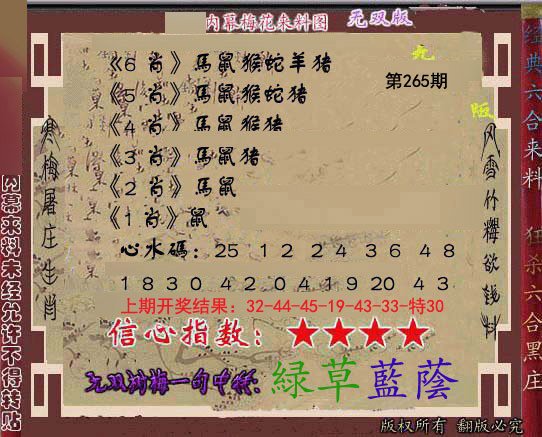 内幕梅花来料图 无双版
《6 肖》馬鼠猴蛇羊猪
第265期
《5 肖》馬鼠猴蛇猪
《4 肖》馬鼠猴猪
《3 肖》馬鼠猪
《2 肖》馬鼠
《1 肖》鼠
心水碼：25 12 24 36 48
18 30 42 04 19 20 43
上期开奖结果：32-44-45-19-43-33-特30
信心指数：★★★★
无双狗梅一句中特：緑草藍蔭
版权所有 翻版必究
寒梅屠庄生肖
内幕来料未经允许不得转贴
经典六合来料 狂杀六合黑庄